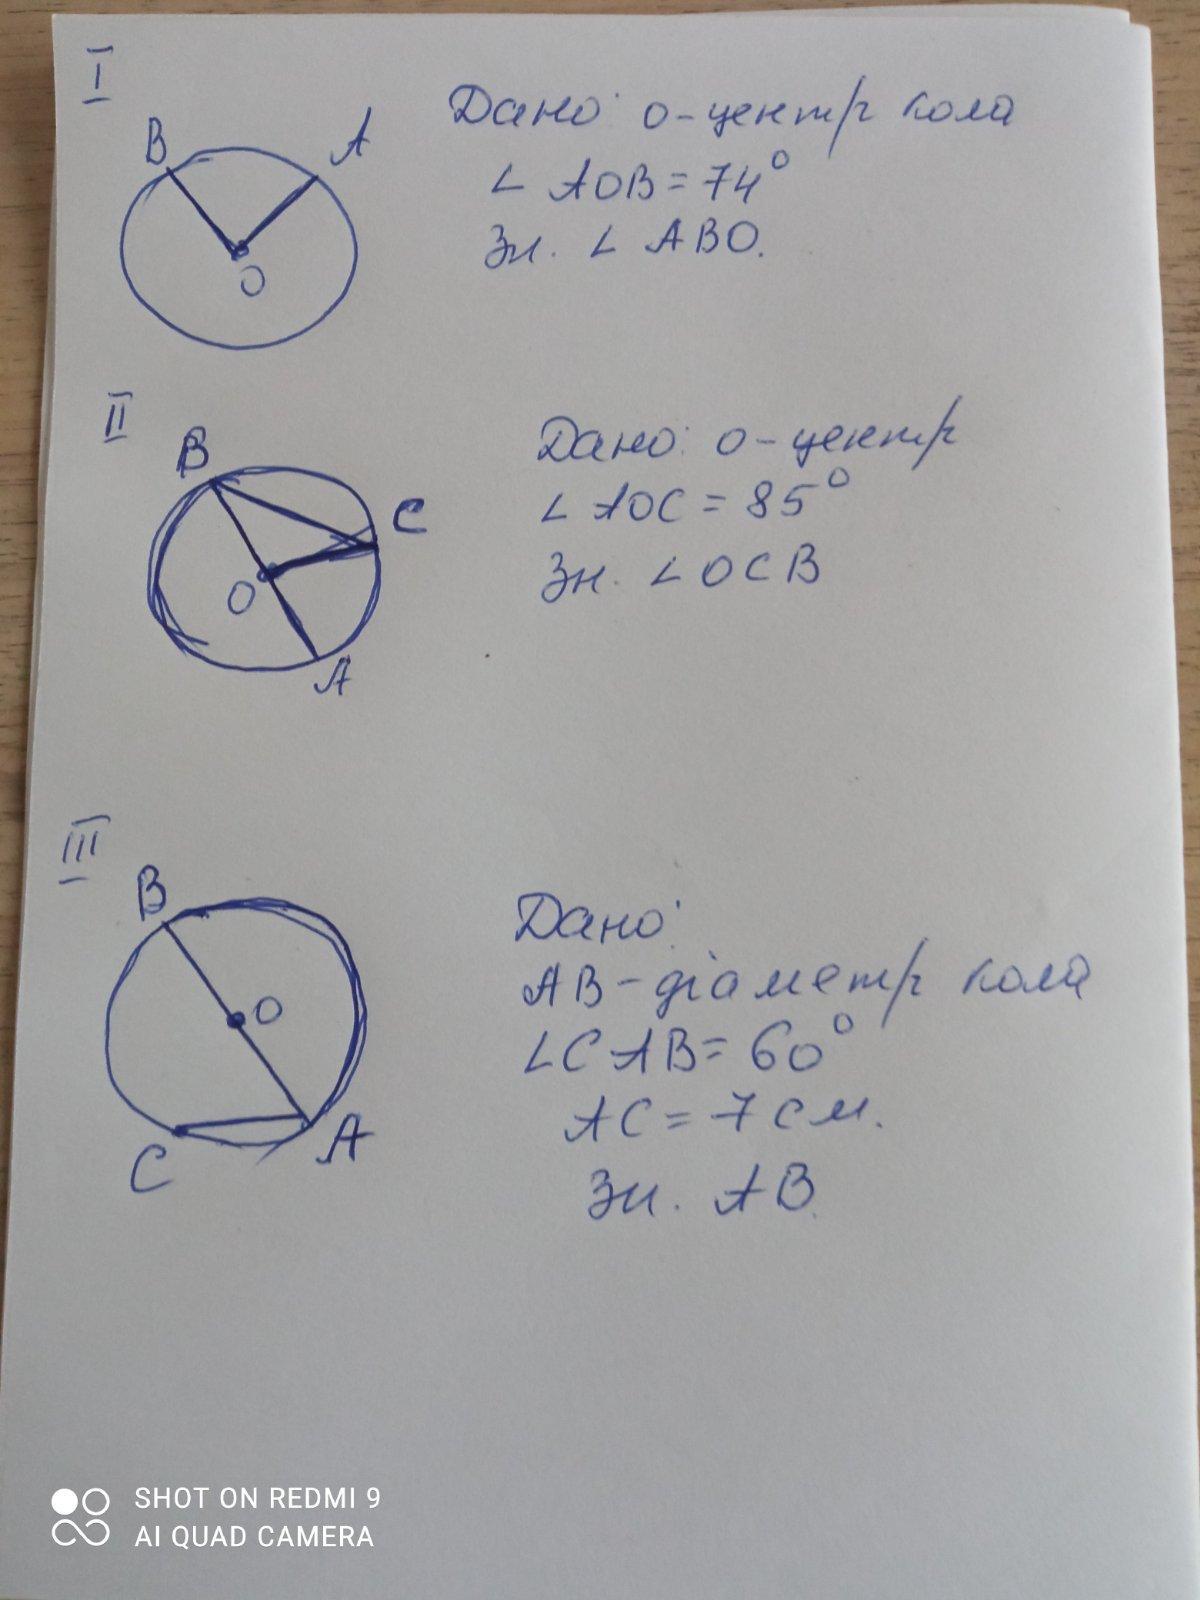 I
B
A
O
Дано: O-центр кола
∠ AOB = 74°
Зн. ∠ ABO.
II
B
C
O
A
Дано: O-центр
∠ AOC = 85°
Зн. ∠ OCB
III
B
O
C
A
Дано:
AB-діаметр кола
∠CAB = 60°
AC = 7 см.
Зн. AB.
SHOT ON REDMI 9
AI QUAD CAMERA